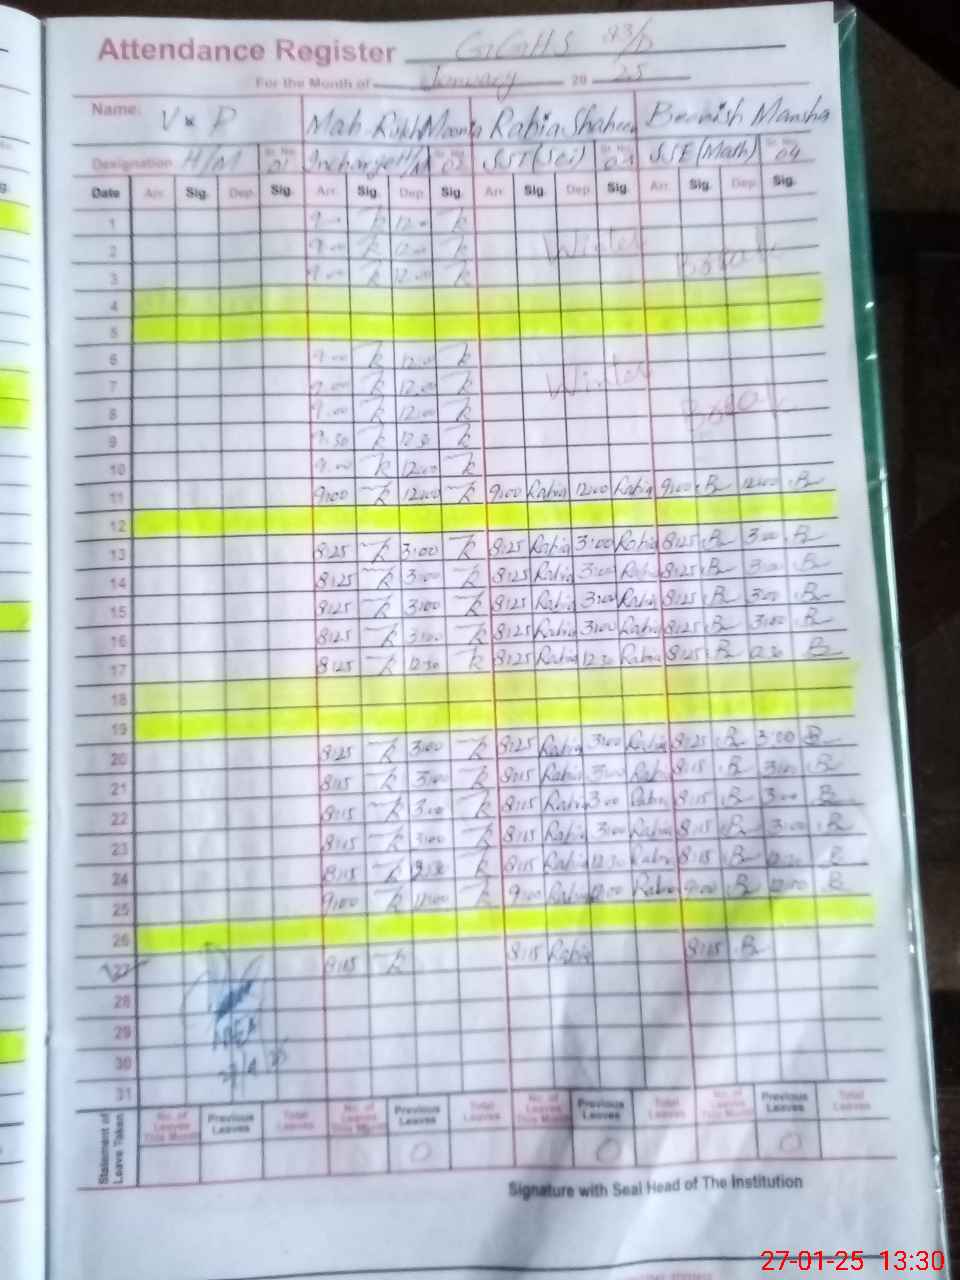 Attendance Register GGHS 93/D
For the Month of January 20 25
Name: V x P Mah Rukh Rabia Shaheen Beenish Mansha
Designation H/M Sr. No. 01 Incharge H/M 02 SST (Sci) SSE (Math) Sr. No. 04
Date Arr. Sig. Dep. Sig. Arr. Sig. Dep. Sig. Arr. Sig. Dep. Sig. Arr. Sig. Dep. Sig.
1 9:00 12:00
2 9:00 12:00 Winter Break
3 9:00 12:00
4
5
6 9:00 12:00
7 9:00 12:00 Winter
8 9:00 12:00 Break
9 9:30 12:30
10 9:00 12:00
11 9:00 12:00 9:00 Rabia 12:00 Rabia 9:00 12:00
12
13 8:25 3:00 8:25 Rabia 3:00 Rabia 8:25 3:00
14 8:25 3:00 8:25 Rabia 3:00 Rabia 8:25 3:00
15 8:25 3:00 8:25 Rabia 3:00 Rabia 8:25 3:00
16 8:25 3:00 8:25 Rabia 3:00 Rabia 8:25 3:00
17 8:25 12:30 8:25 Rabia 12:30 Rabia 8:25 12:30
18
19
20 8:25 3:00 8:25 Rabia 3:00 Rabia 8:25 3:00
21 8:15 3:00 8:15 Rabia 3:00 Rabia 8:15 3:00
22 8:15 3:00 8:15 Rabia 3:00 Rabia 8:15 3:00
23 8:15 3:00 8:15 Rabia 3:00 Rabia 8:15 3:00
24 8:15 12:30 8:15 Rabia 12:30 Rabia 8:15 12:30
25 9:00 12:00 9:00 Rabia 12:00 Rabia 9:00 12:00
26
27 8:15 8:15 Rabia 8:15
28
29
30
31
Statement of Leave Taken No. of Leaves This Month Previous Leaves Total Leaves No. of Leaves This Month Previous Leaves Total Leaves No. of Leaves This Month Previous Leaves Total Leaves No. of Leaves This Month Previous Leaves Total Leaves
0 0 0
Signature with Seal Head of The Institution
27-01-25 13:30